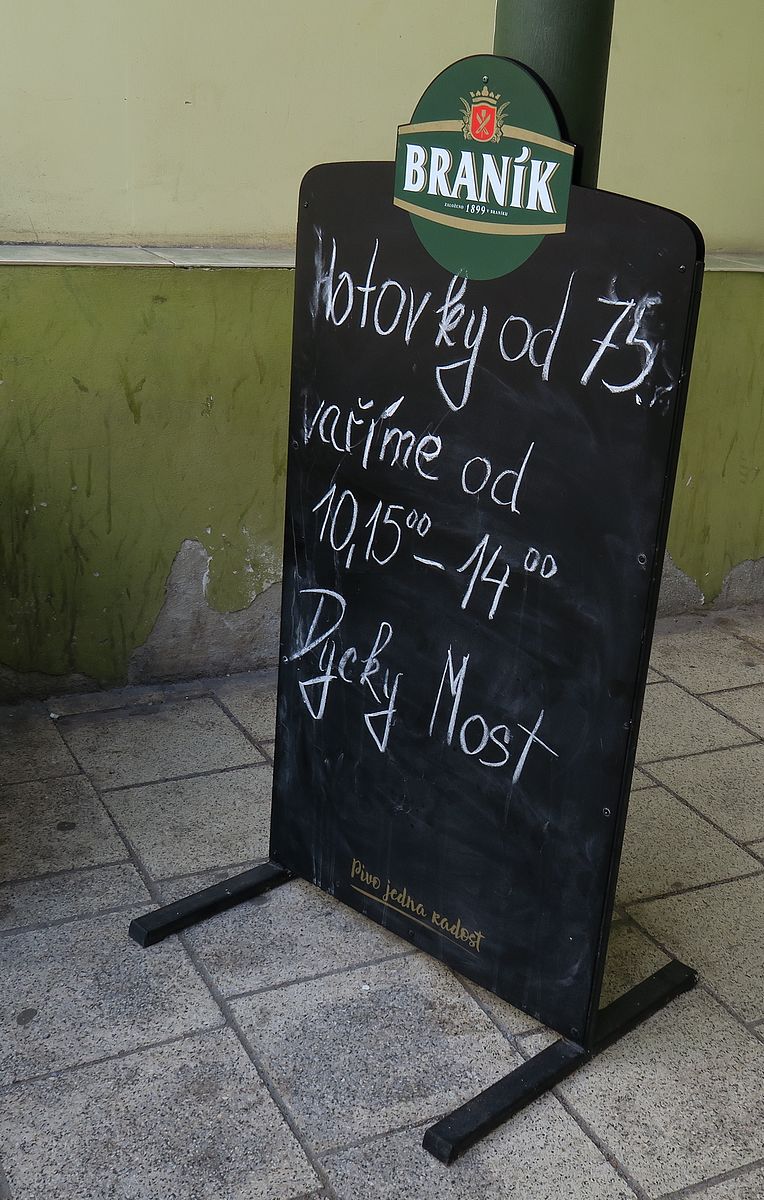 BRANÍK
ZALOŽENO 1899 V BRANÍKU
Hotovky od 75.
vaříme od
10,15⁰⁰ – 14⁰⁰
Dycky Most
pivo jedna radost